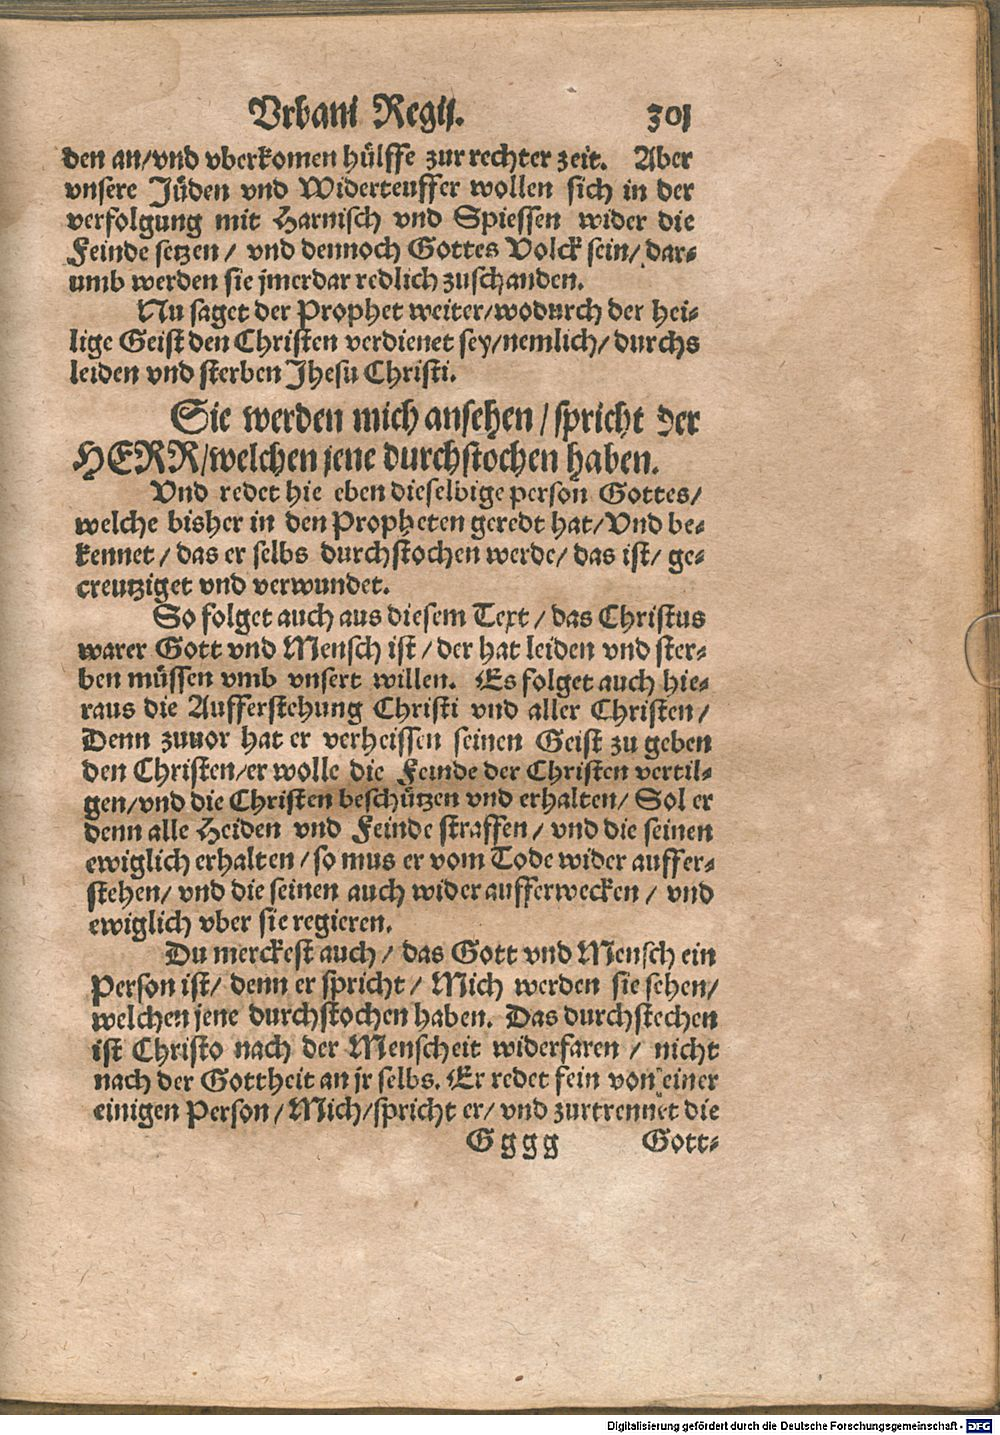 Vrbani Regij. 301
den an/vnd vberkomen hülffe zur rechter zeit. Aber
vnsere Jüden vnd Widerteuffer wollen sich in der
verfolgung mit Harnisch vnd Spiessen wider die
Feinde setzen / vnd dennoch Gottes Volck sein/ dar-
umb werden sie jmerdar redlich zuschanden.
Nu saget der Prophet weiter/wodurch der hei-
lige Geist den Christen verdienet sey/nemlich/ durchs
leiden vnd sterben Jhesu Christi.
Sie werden mich ansehen / spricht der
HERR/welchen jene durchstochen haben.
Vnd redet hie eben dieselbige person Gottes/
welche bisher in den Propheten geredt hat/Vnd be-
kennet / das er selbs durchstochen werde/ das ist/ ge-
creutziget vnd verwundet.
So folget auch aus diesem Text / das Christus
warer Gott vnd Mensch ist / der hat leiden vnd ster-
ben müssen vmb vnsert willen. Es folget auch hie-
raus die Aufferstehung Christi vnd aller Christen /
Denn zuuor hat er verheissen seinen Geist zu geben
den Christen/er wolle die Feinde der Christen vertil-
gen/vnd die Christen beschützen vnd erhalten/ Sol er
denn alle Heiden vnd Feinde straffen / vnd die seinen
ewiglich erhalten / so mus er vom Tode wider auffer-
stehen/ vnd die seinen auch wider aufferwecken / vnd
ewiglich vber sie regieren.
Du merckest auch / das Gott vnd Mensch ein
Person ist/ denn er spricht / Mich werden sie sehen/
welchen jene durchstochen haben. Das durchstechen
ist Christo nach der Menscheit widerfaren / nicht
nach der Gottheit an jr selbs. Er redet fein von einer
einigen Person / Mich/spricht er/ vnd zurtrennet die
G g g g Gott-
Digitalisierung gefördert durch die Deutsche Forschungsgemeinschaft - DFG